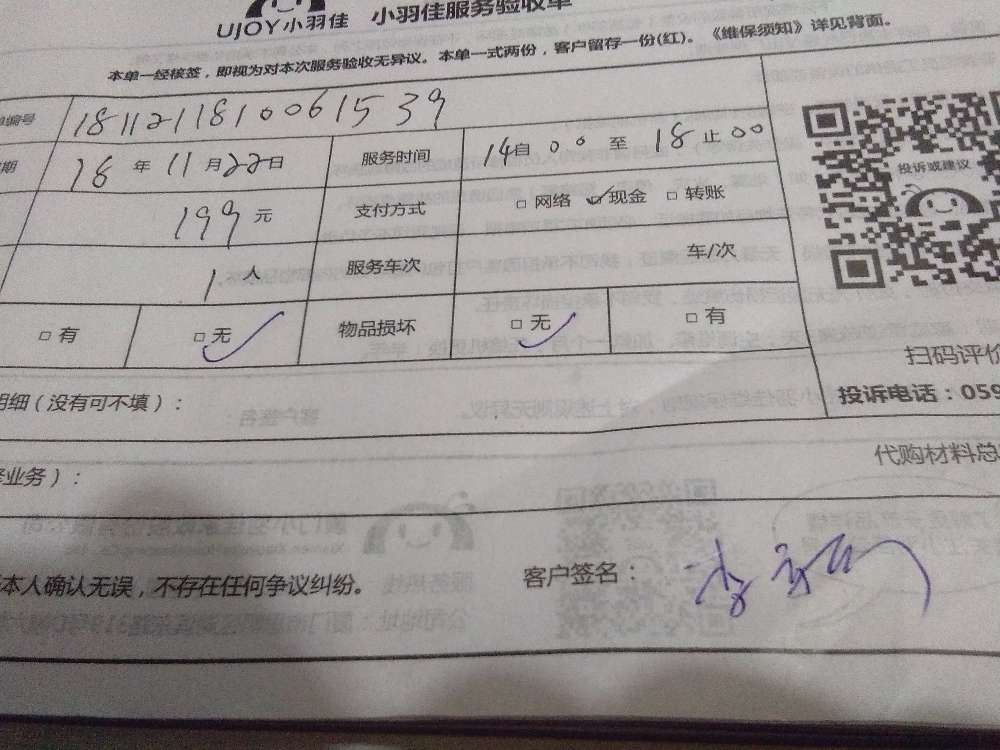 UJOY小羽佳 小羽佳服务验收单
本单一经核签，即视为对本次服务验收无异议。本单一式两份，客户留存一份(红)。《维保须知》详见背面。
编号 18112118100061539
期 18 年 11 月 22 日 服务时间 14 自 00 至 18 止 00
199 元 支付方式 □ 网络 ☑ 现金 □ 转账
1 人 服务车次 车/次
□ 有 □ 无 物品损坏 □ 无 □ 有
投诉或建议
扫码评价
明细（没有可不填）：
投诉电话：059
代购材料总
业务）：
本人确认无误，不存在任何争议纠纷。 客户签名：